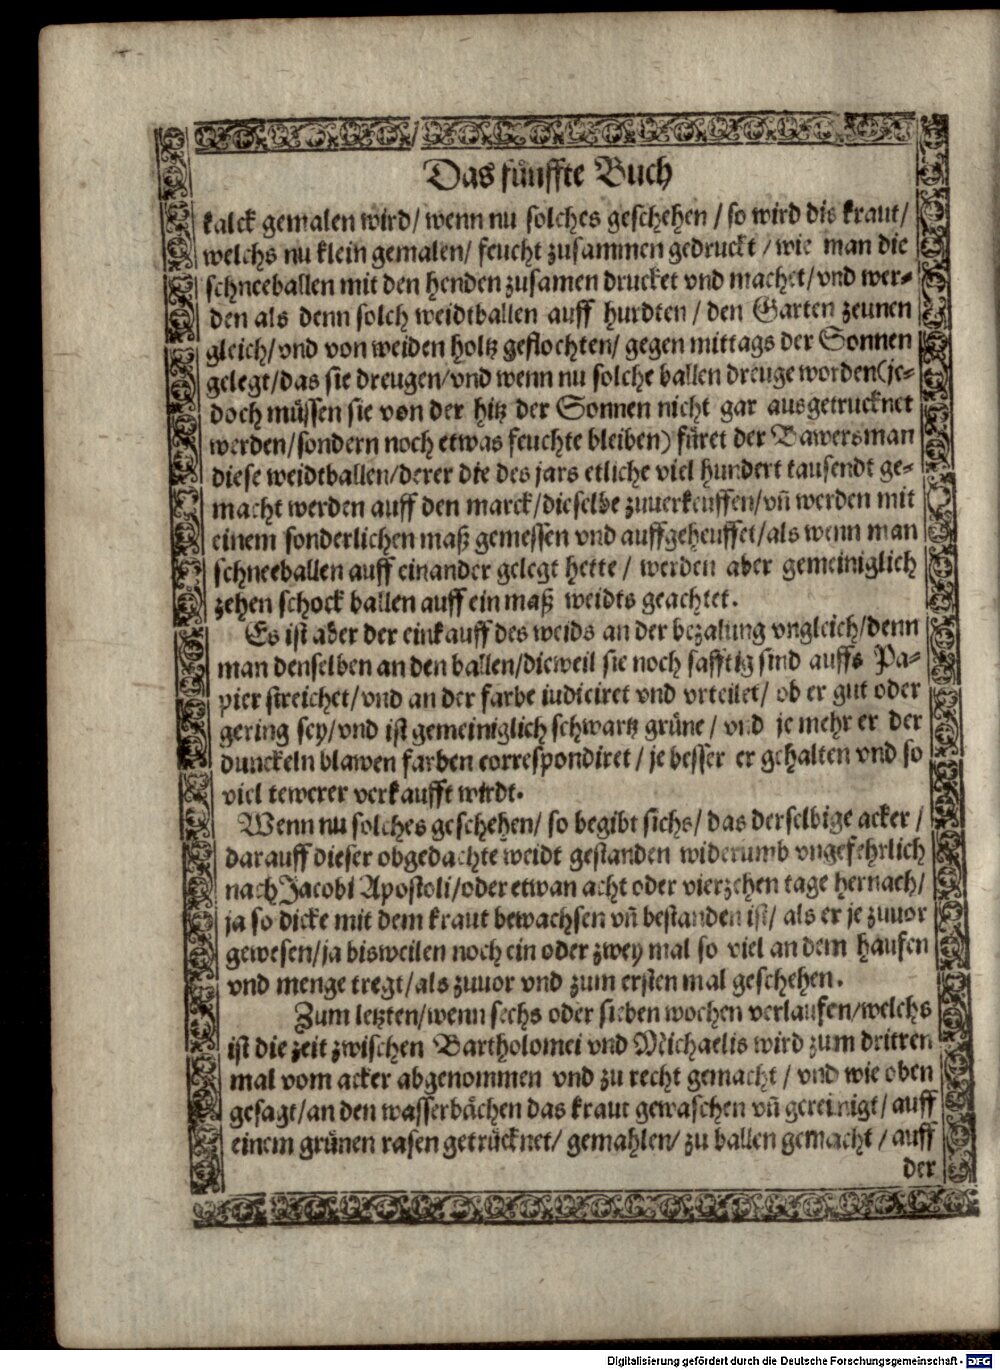 Das fünffte Buch
kalck gemalen wird/ wenn nu solches geschehen / so wird dis kraut/
welchs nu klein gemalen/ feucht zusammen gedruckt / wie man die
schneeballen mit den henden zusamen drucket vnd machet/ vnd wer-
den als denn solch weidtballen auff hurdten / den Garten zeunen
gleich/ vnd von weiden holtz geflochten/ gegen mittags der Sonnen
gelegt/ das sie dreugen/ vnd wenn nu solche ballen dreuge worden (je-
doch müssen sie von der hitz der Sonnen nicht gar ausgetrucknet
werden/ sondern noch etwas feuchte bleiben) füret der Bawersman
diese weidtballen/ derer die des jars etliche viel hundert tausendt ge-
macht werden auff den marck/ dieselbe zuuerkeuffen/ vñ werden mit
einem sonderlichen maß gemessen vnd auffgeheuffet/ als wenn man
schneeballen auff einander gelegt hette / werden aber gemeiniglich
zehen schock ballen auff ein maß weidts geachtet.
Es ist aber der einkauff des weids an der bezalung vngleich/ denn
man denselben an den ballen/ dieweil sie noch safftig sind auffs Pa-
pier streichet/ vnd an der farbe iudiciret vnd vrteilet/ ob er gut oder
gering sey/ vnd ist gemeiniglich schwartz grüne / vnd je mehr er der
dunckeln blawen farben correspondiret / je besser er gehalten vnd so
viel tewerer verkaufft wirdt.
Wenn nu solches geschehen/ so begibt sichs/ das derselbige acker /
darauff dieser obgedachte weidt gestanden widerumb vngefehrlich
nach Jacobi Apostoli/ oder etwan acht oder vierzehen tage hernach/
ja so dicke mit dem kraut bewachsen vñ bestanden ist/ als er je zuuor
gewesen/ ja bisweilen noch ein oder zwey mal so viel an dem haufen
vnd menge tregt/ als zuuor vnd zum ersten mal geschehen.
Zum letzten/ wenn sechs oder sieben wochen verlaufen/ welchs
ist die zeit zwischen Bartholomei vnd Michaelis wird zum dritten
mal vom acker abgenommen vnd zu recht gemacht / vnd wie oben
gesagt/ an den wasserbächen das kraut gewaschen vñ gereinigt/ auff
einem grünen rasen getrücknet/ gemahlen/ zu ballen gemacht / auff
der
Digitalisierung gefördert durch die Deutsche Forschungsgemeinschaft - DFG